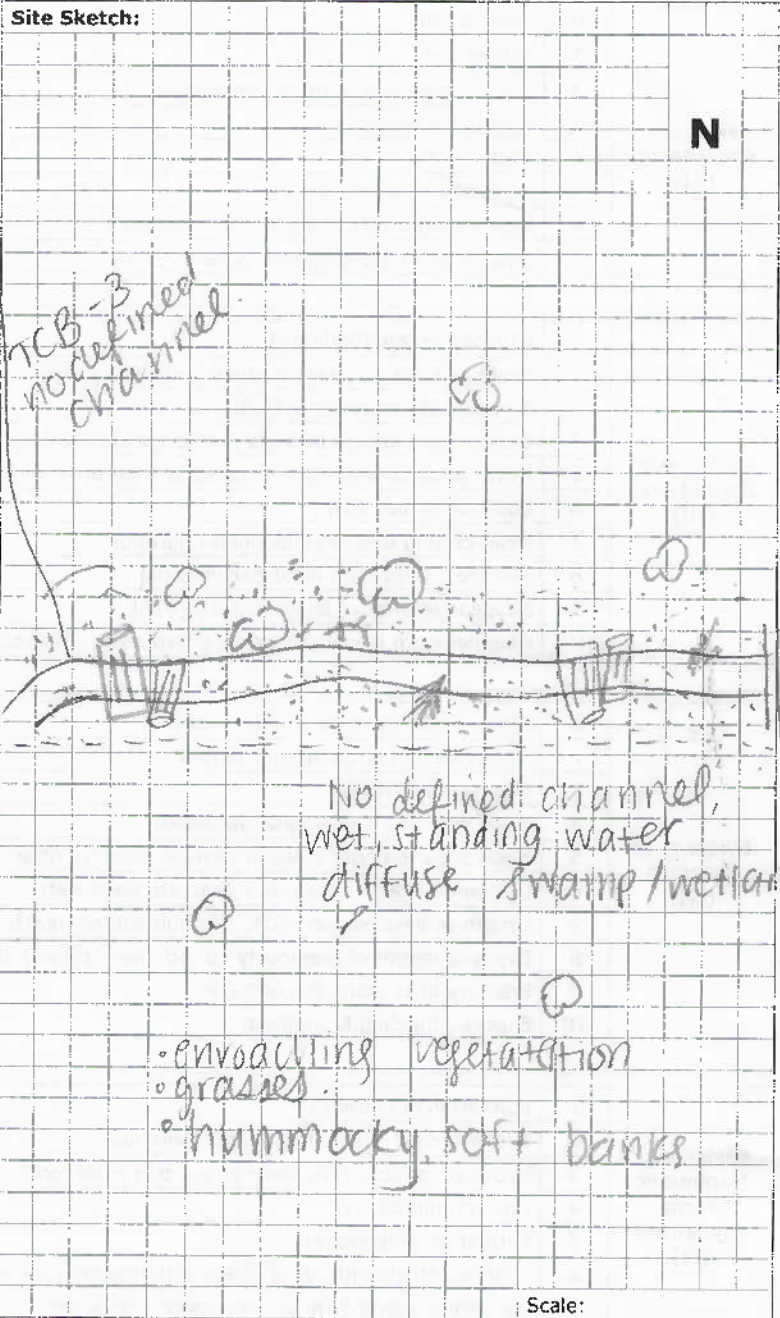 Site Sketch:
N
TCB-3
no defined
channel.
No defined channel,
wet, standing water
diffuse swamp/wetlan
• vegetatation
• grasses.
• hummocky, soft banks
Scale: